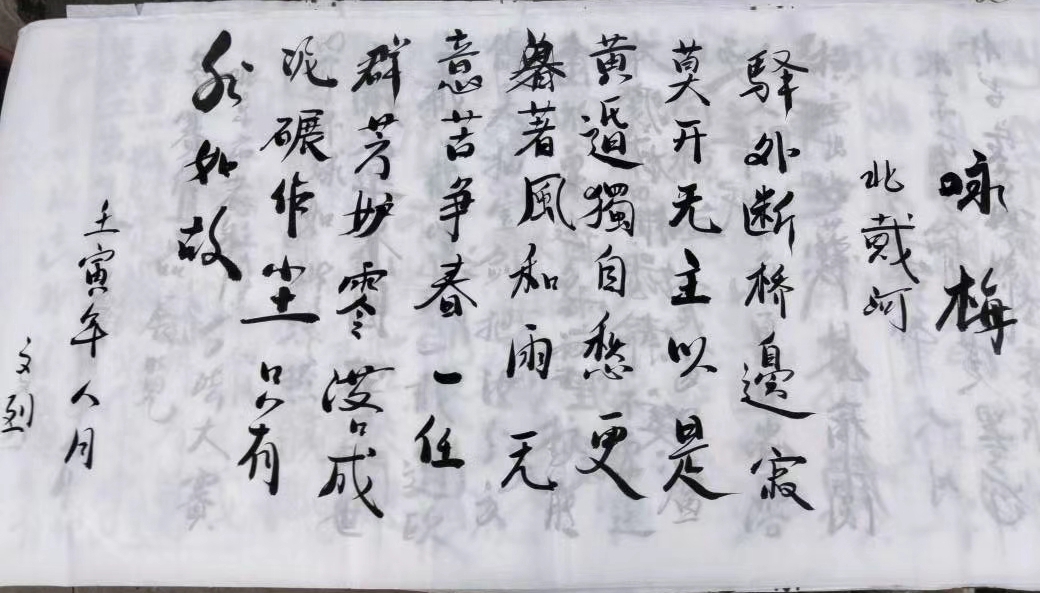 咏梅
北戴河
驿外断桥邊寂
莫开无主以是
黄昏獨自愁更
著風和雨无
意苦争春一任
群芳妒零落成
泥碾作尘只有
如故
壬寅年八月
文烈